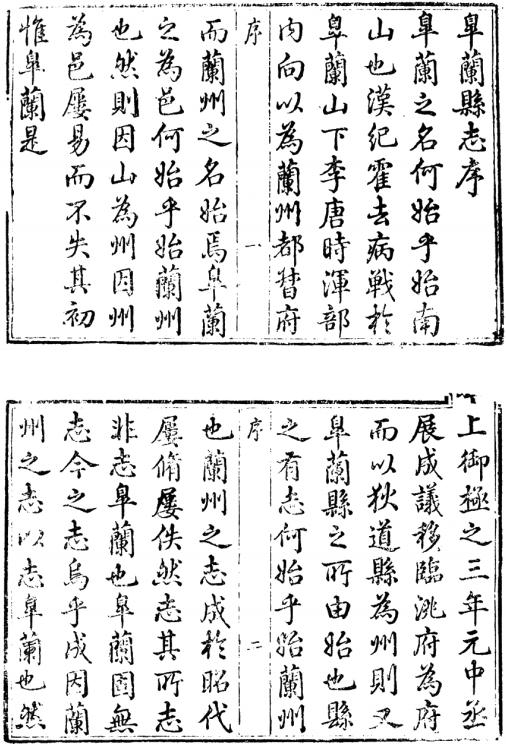 皐蘭縣志序
皐蘭之名何始乎始南
山也漢紀霍去病戰於
皐蘭山下李唐時渾部
內向以為蘭州都督府
序
一
而蘭州之名始焉皐蘭
之為邑何始乎始蘭州
也然則因山為州因州
為邑屢易而不失其初
惟皐蘭是
上御極之三年元中丞
展成議移臨洮府為府
而以狄道縣為州則又
皐蘭縣之所由始也縣
之有志何始乎始蘭州
序
二
也蘭州之志成於昭代
屢脩屢佚然志其所志
非志皐蘭也皐蘭固無
志今之志烏乎成因蘭
州之志以志皐蘭也然